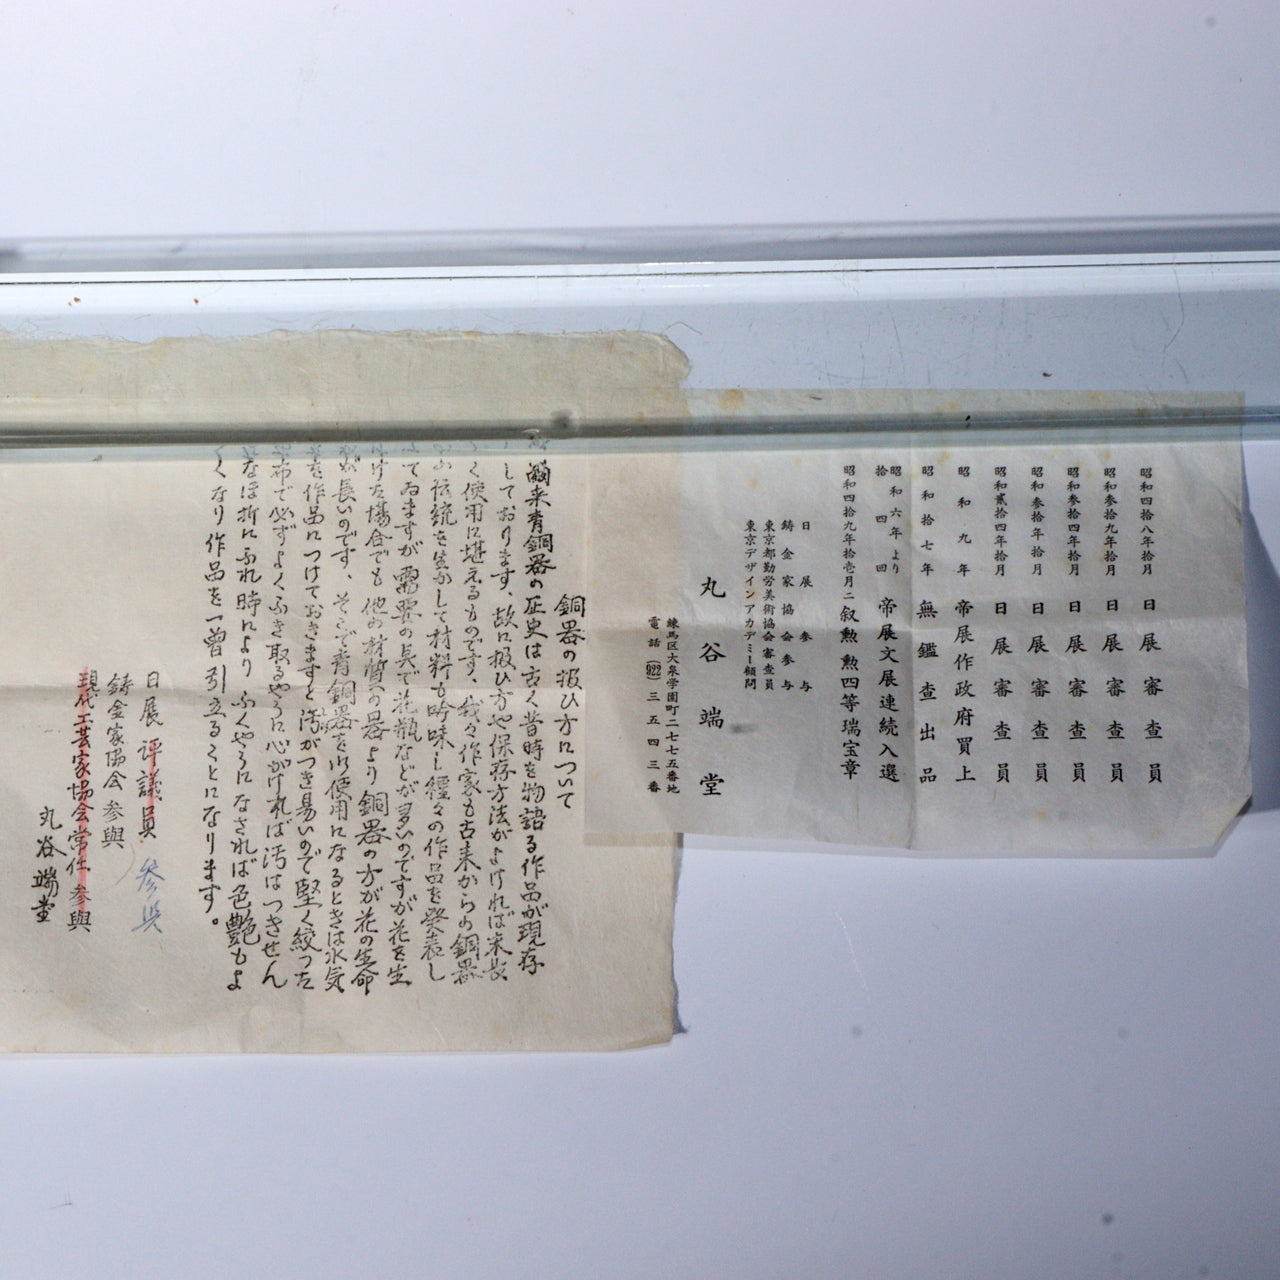 昭和四拾八年拾月 日展審査員
昭和参拾九年拾月 日展審査員
昭和参拾四年拾月 日展審査員
昭和参拾年拾月 日展審査員
昭和貳拾四年拾月 日展審査員
昭和九年 帝展作政府買上
昭和拾七年 無鑑査出品
昭和六年より拾四回 帝展文展連続入選
昭和四拾九年拾壱月二叙勲 勲四等瑞宝章
日展参与
鋳金家協会参与
東京都勤労美術協会審査員
東京デザインアカデミー顧問
丸谷端堂
練馬区大泉学園町二七七五番地
電話(922)三五四三番
銅器の扱ひ方について
爾来青銅器の歴史は古く昔時を物語る作品が現存
しております、故に扱ひ方や保存方法がよければ末長
く使用に堪えるものです、我々作家も古来からの銅器
の伝統を生かして材料も吟味し種々の作品を発表し
てゐますが需要の具で花瓶などが多いのですが花を生
けた場合でも他の材質の器より銅器の方が花の生命
が長いのです、そこで青銅器を御使用になるときは水気
を作品につけておきますと汚がつき易いので堅く絞った
布で必ずよくふき取るやうに心がければ汚はつきせん
なほ折にふれ時により ふくやうになされば色艶もよ
くなり作品を一曽引立るくとになります。
日展評議員 参與
鋳金家協会参與
現代工芸家協会常任参與
丸谷端堂